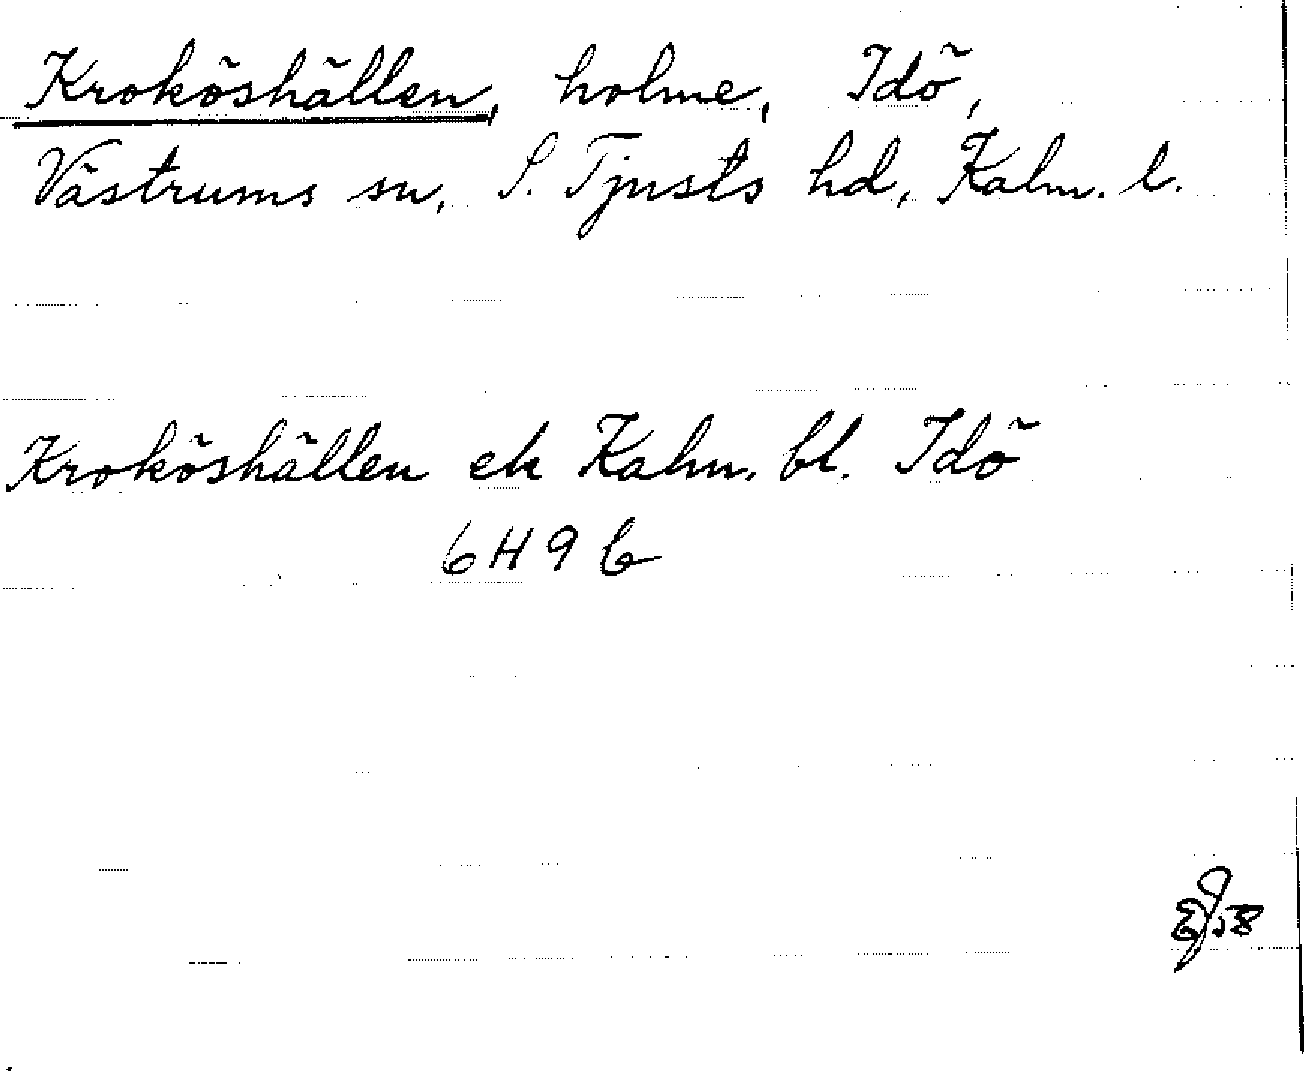 Kroköshällen, holme, Idö,
Västrums sn, S. Tjusts hd, Kalm. l.
Kroköshällen ek Kalm. bl. Idö
6H9b